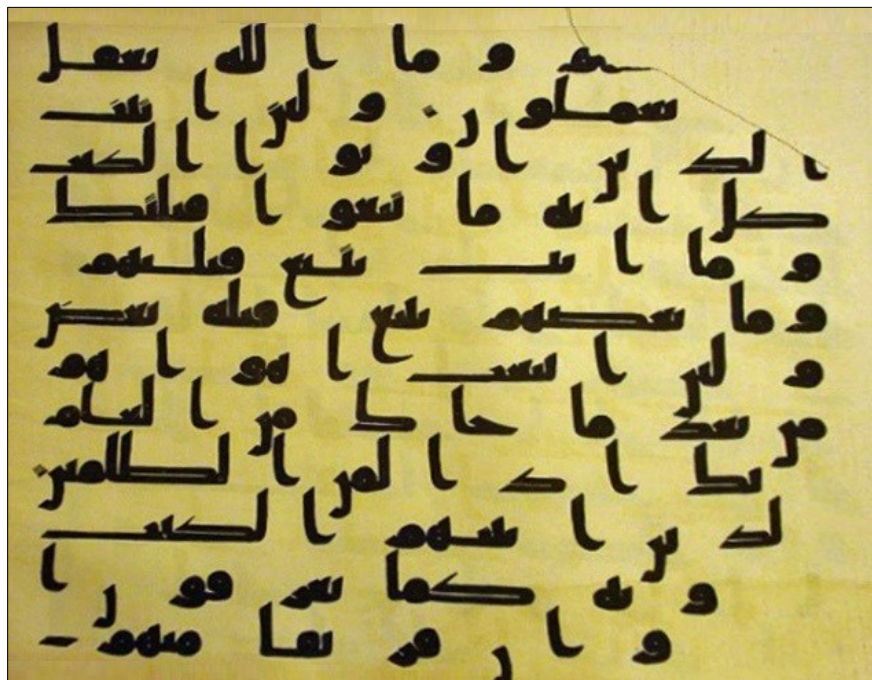 ـهم وما الله بغفل
يعملون ولئن اتيت
الذين اوتوا الكتب
كل اية ما تبعوا قبلتك
وما انت بتبع قبلتهم
وما بعضهم بتبع قبلة بعض
ولئن اتبعت اهواهم
من بعد ما جاك من العلم
انك اذا لمن الظلمين
الذين اتينهم الكتب
ونه كما يعرفون ا
وان فريقا منهم